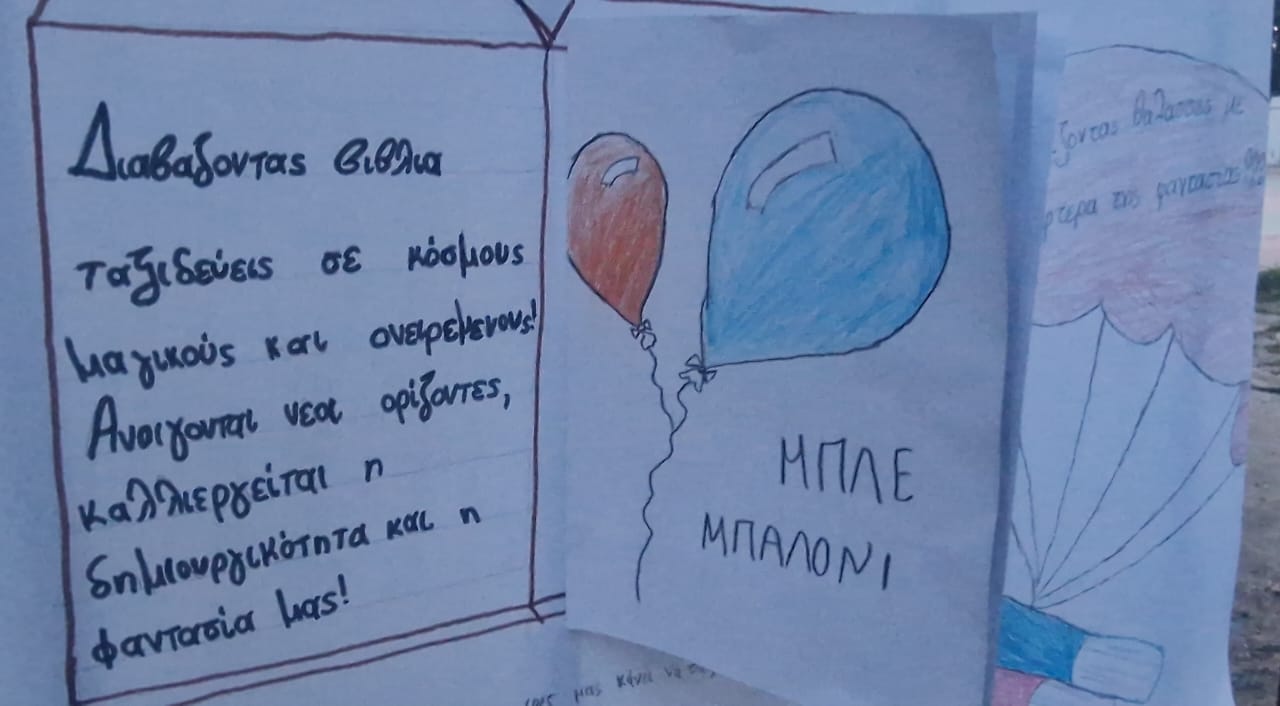 Διαβαζοντας βιβλια
ταξιδεύεις σε κόσμους
μαγικούς και ονειρεμενους!
Ανοιγονται νεοι ορίζοντες,
καλλιεργείται η
δημιουργικότητα και η
φαντασία μας!
ΜΠΛΕ
ΜΠΑΛΟΝΙ
ζοντας θαλασσες με
φτερα της φαντασιας
μας κάνει να